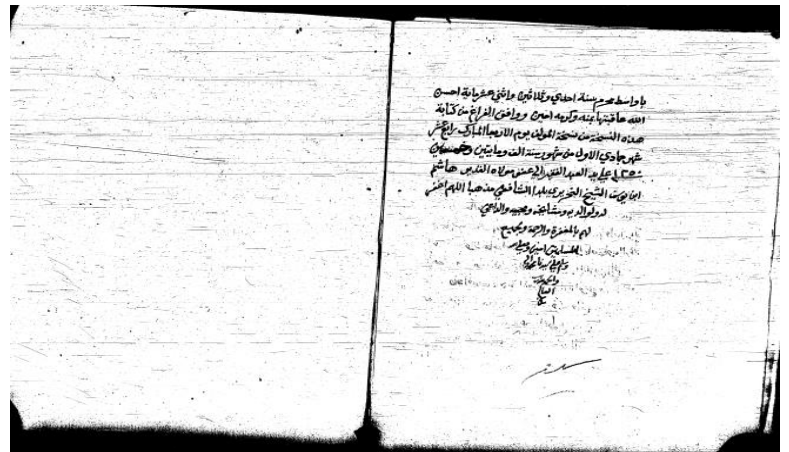 باواسط محرم سنة احدي وثلاثين واثني عشر ماية احسن
الله عاقبتها بمنه وكرمه امين ووافق الفراغ من كتابة
هذه النسخة من نسخة المولف يوم الاربعا المبارك رابع عشر
شهر جمادي الاول من شهور سنة الف ومايتين وخمسين
١٢٥٠ علي يد العبد الفقير الي عفو مولاه القدير هاشم
ابن الشيخ النحريري بلدا الشافعي مذهبا اللهم اغفر
له ولوالديه ومشايخه ومحبيه والداعي
لهم بالمغفرة والرحمة ولجميع
المسلمين امين وصلي
الله علي سيدنا محمد